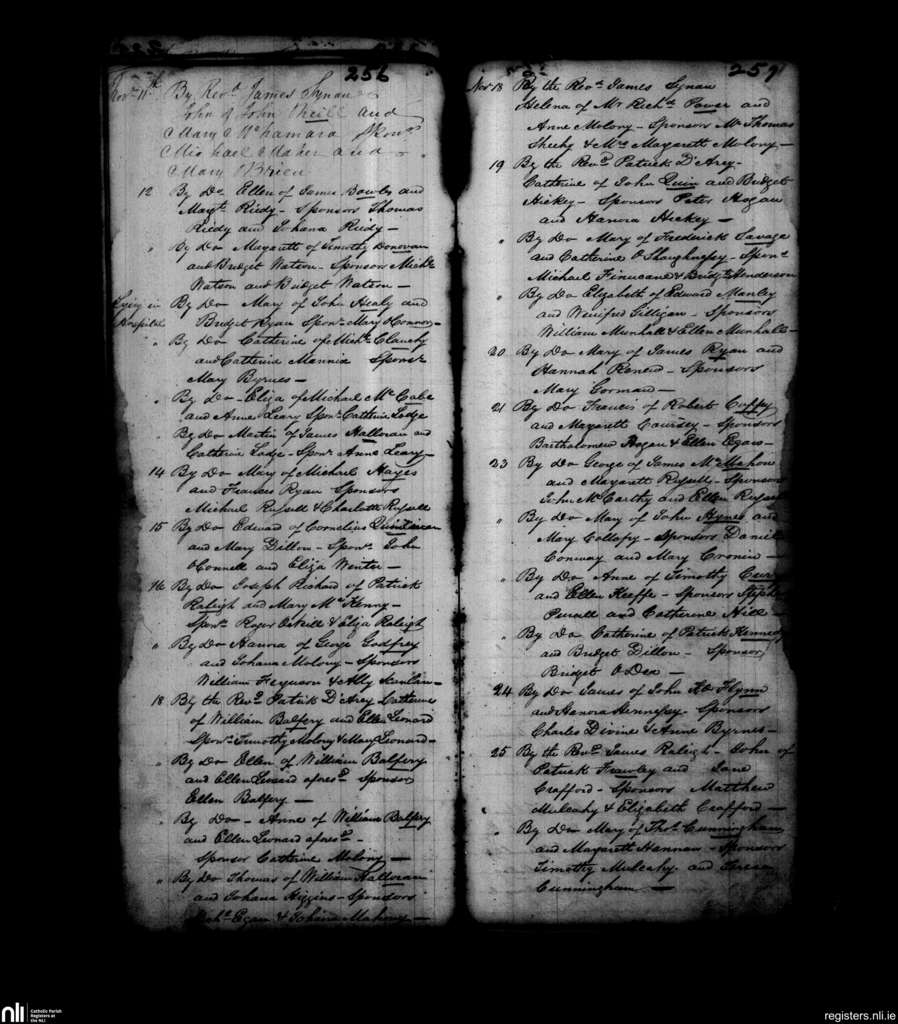 256
Novr. 11th. By Revd. James Synan
John of John O'Neill and
Mary McNamara Sponrs.
Michael Maher and
Mary O'Brien
12 By Do Ellen of James Bowles and
Magt. Reidy - Sponsors Thomas
Reidy and Johana Reidy -
" By Do Magarett of Timothy Donovan
and Bridget Watson - Sponsors Michl.
Watson and Bridget Watson -
Lying in By Do Mary of John Healy and
Hospital Bridget Ryan Sponr. Mary Connor -
" By Do Catherine of Michl. Clanchy
and Catherine Mannix Sponsr.
Mary Byrnes -
" By Do - Eliza of Michael McCabe
and Anne Leary Sponr. Catherine Lodge
" By Do Martin of James Halloran and
Catherine Lodge - Sponr. Anne Leary -
14 By Do Mary of Michael Hayes
and Frances Ryan Sponsors
Michael Russell & Charlotte Russell
15 By Do Edward of Cornelius
and Mary Dillon - Sponrs. John
O'Connell and Eliza Winter -
16 By Do Joseph Richard of Patrick
Raleigh and Mary McKenny -
Sponrs. Roger & Eliza Raleigh
" By Do Hanora of George Godfrey
and Johana Molony - Sponsors
William Ferguson & Ally Scanlan -
18 By the Revd. Patrick D'Arcy Catherine
of William Balfery and Ellen Leonard
Sponrs. Timothy Molony & Mary Leonard -
" By Do Ellen of William Balfery
and Ellen Leonard aforesd. Sponsor
Ellen Balfery -
" By Do - Anne of William Balfery
and Ellen Leonard aforesd. -
Sponsor Catherine Molony -
" By Do Thomas of William Halloran
and Johana Higgins - Sponsors
Michl. Egan & Johana Mahony -
257
Novr 18 By the Revd. James Synan
Helena of Mr Richd. Power and
Anne Molony - Sponsors Mr Thomas
Sheehy & Mrs Magarett Molony -
19 By the Revd. Patrick D'Arcy -
Catherine of John Quin and Bridget
Hickey - Sponsors Peter Hogan
and Hanora Hickey -
" By Do Mary of Frederick Savage
and Catherine O'Shaughnessy - Sponrs.
Michael Finucane & Bridgt. Henderson
" By Do Elizabeth of Edward Manley
and Winifred Gilligan - Sponsors
William Munhall & Ellen Munhall -
20 By Do Mary of James Ryan and
Hannah Renew - Sponsors
Mary Gorman -
21 By Do Francis of Robert
and Magarett Coursey - Sponsors
Bartholomew Hogan & Ellen Egan -
23 By Do George of James McMahon
and Magarett Russell - Sponsors
John McCarthy and Ellen Russell
" By Do Mary of John Hynes and
Mary Collopy - Sponsors Daniel
Conway and Mary Cronin -
" By Do Anne of Timothy
and Ellen Keeffe - Sponsors Stephen
Purcell and Catherine Hill -
" By Do Catherine of Patrick Kennedy
and Bridget Dillon - Sponsor
Bridget O'Dea -
24 By Do James of John Flynn
and Hanora Hennessy - Sponsors
Charles Divine & Anne Byrnes -
25 By the Revd. James Raleigh - John of
Patrick Frawley and Jane
Crafford - Sponsors Matthew
Mulcahy & Elizabeth Crafford -
" By Do Mary of Thos. Cunningham
and Magarett Hannan - Sponsors
Timothy Mulcahy and Teresa
Cunningham -
nli
Catholic Parish
Registers at
the NLI
registers.nli.ie